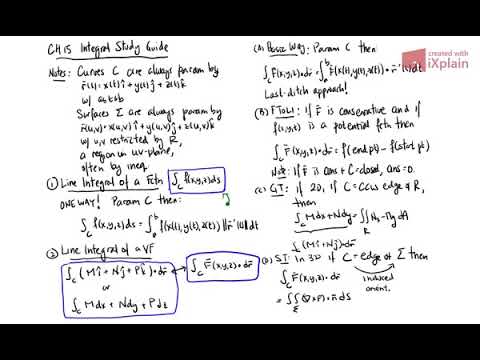 CH 15 Integral Study Guide
Notes: Curves C are always param by
r̄(t) = x(t) î + y(t) ĵ + z(t) k̂
w/ a≤t≤b
Surfaces Σ are always param by
r̄(u,v) = x(u,v) î + y(u,v) ĵ + z(u,v) k̂
w/ u,v restricted by R,
a region in uv-plane,
often by ineq.
① Line Integral of a Fctn ∫_C f(x,y,z) ds
ONE WAY! Param C then:
∫_C f(x,y,z) ds = ∫_a^b f(x(t), y(t), z(t)) ||r̄'(t)|| dt
② Line Integral of a VF
∫_C (M î + N ĵ + P k̂) • dr̄
or
∫_C M dx + N dy + P dz
∫_C F̄(x,y,z) • dr̄
(A) Basic Way: Param C then:
∫_C F̄(x,y,z) • dr̄ = ∫_a^b F̄(x(t), y(t), z(t)) • r̄'(t) dt
Last-ditch approach!
(B) FTOLI: If F̄ is conservative and if
f(x,y,z) is a potential fctn then
∫_C F̄(x,y,z) • dr̄ = f(end pt) - f(start pt)
Note: If F̄ is cons + C closed, ans = 0.
(C) GT: If 2D, if C = CCW edge of R,
then
∫_C M dx + N dy = ∬_R N_x - M_y dA
∫_C (M î + N ĵ) • dr̄
(D) ST: In 3D if C = edge of Σ then
∫_C F̄(x,y,z) • dr̄
induced
orient.
= ∬_Σ (∇×F̄) • n̄ dS
created with
iXplain